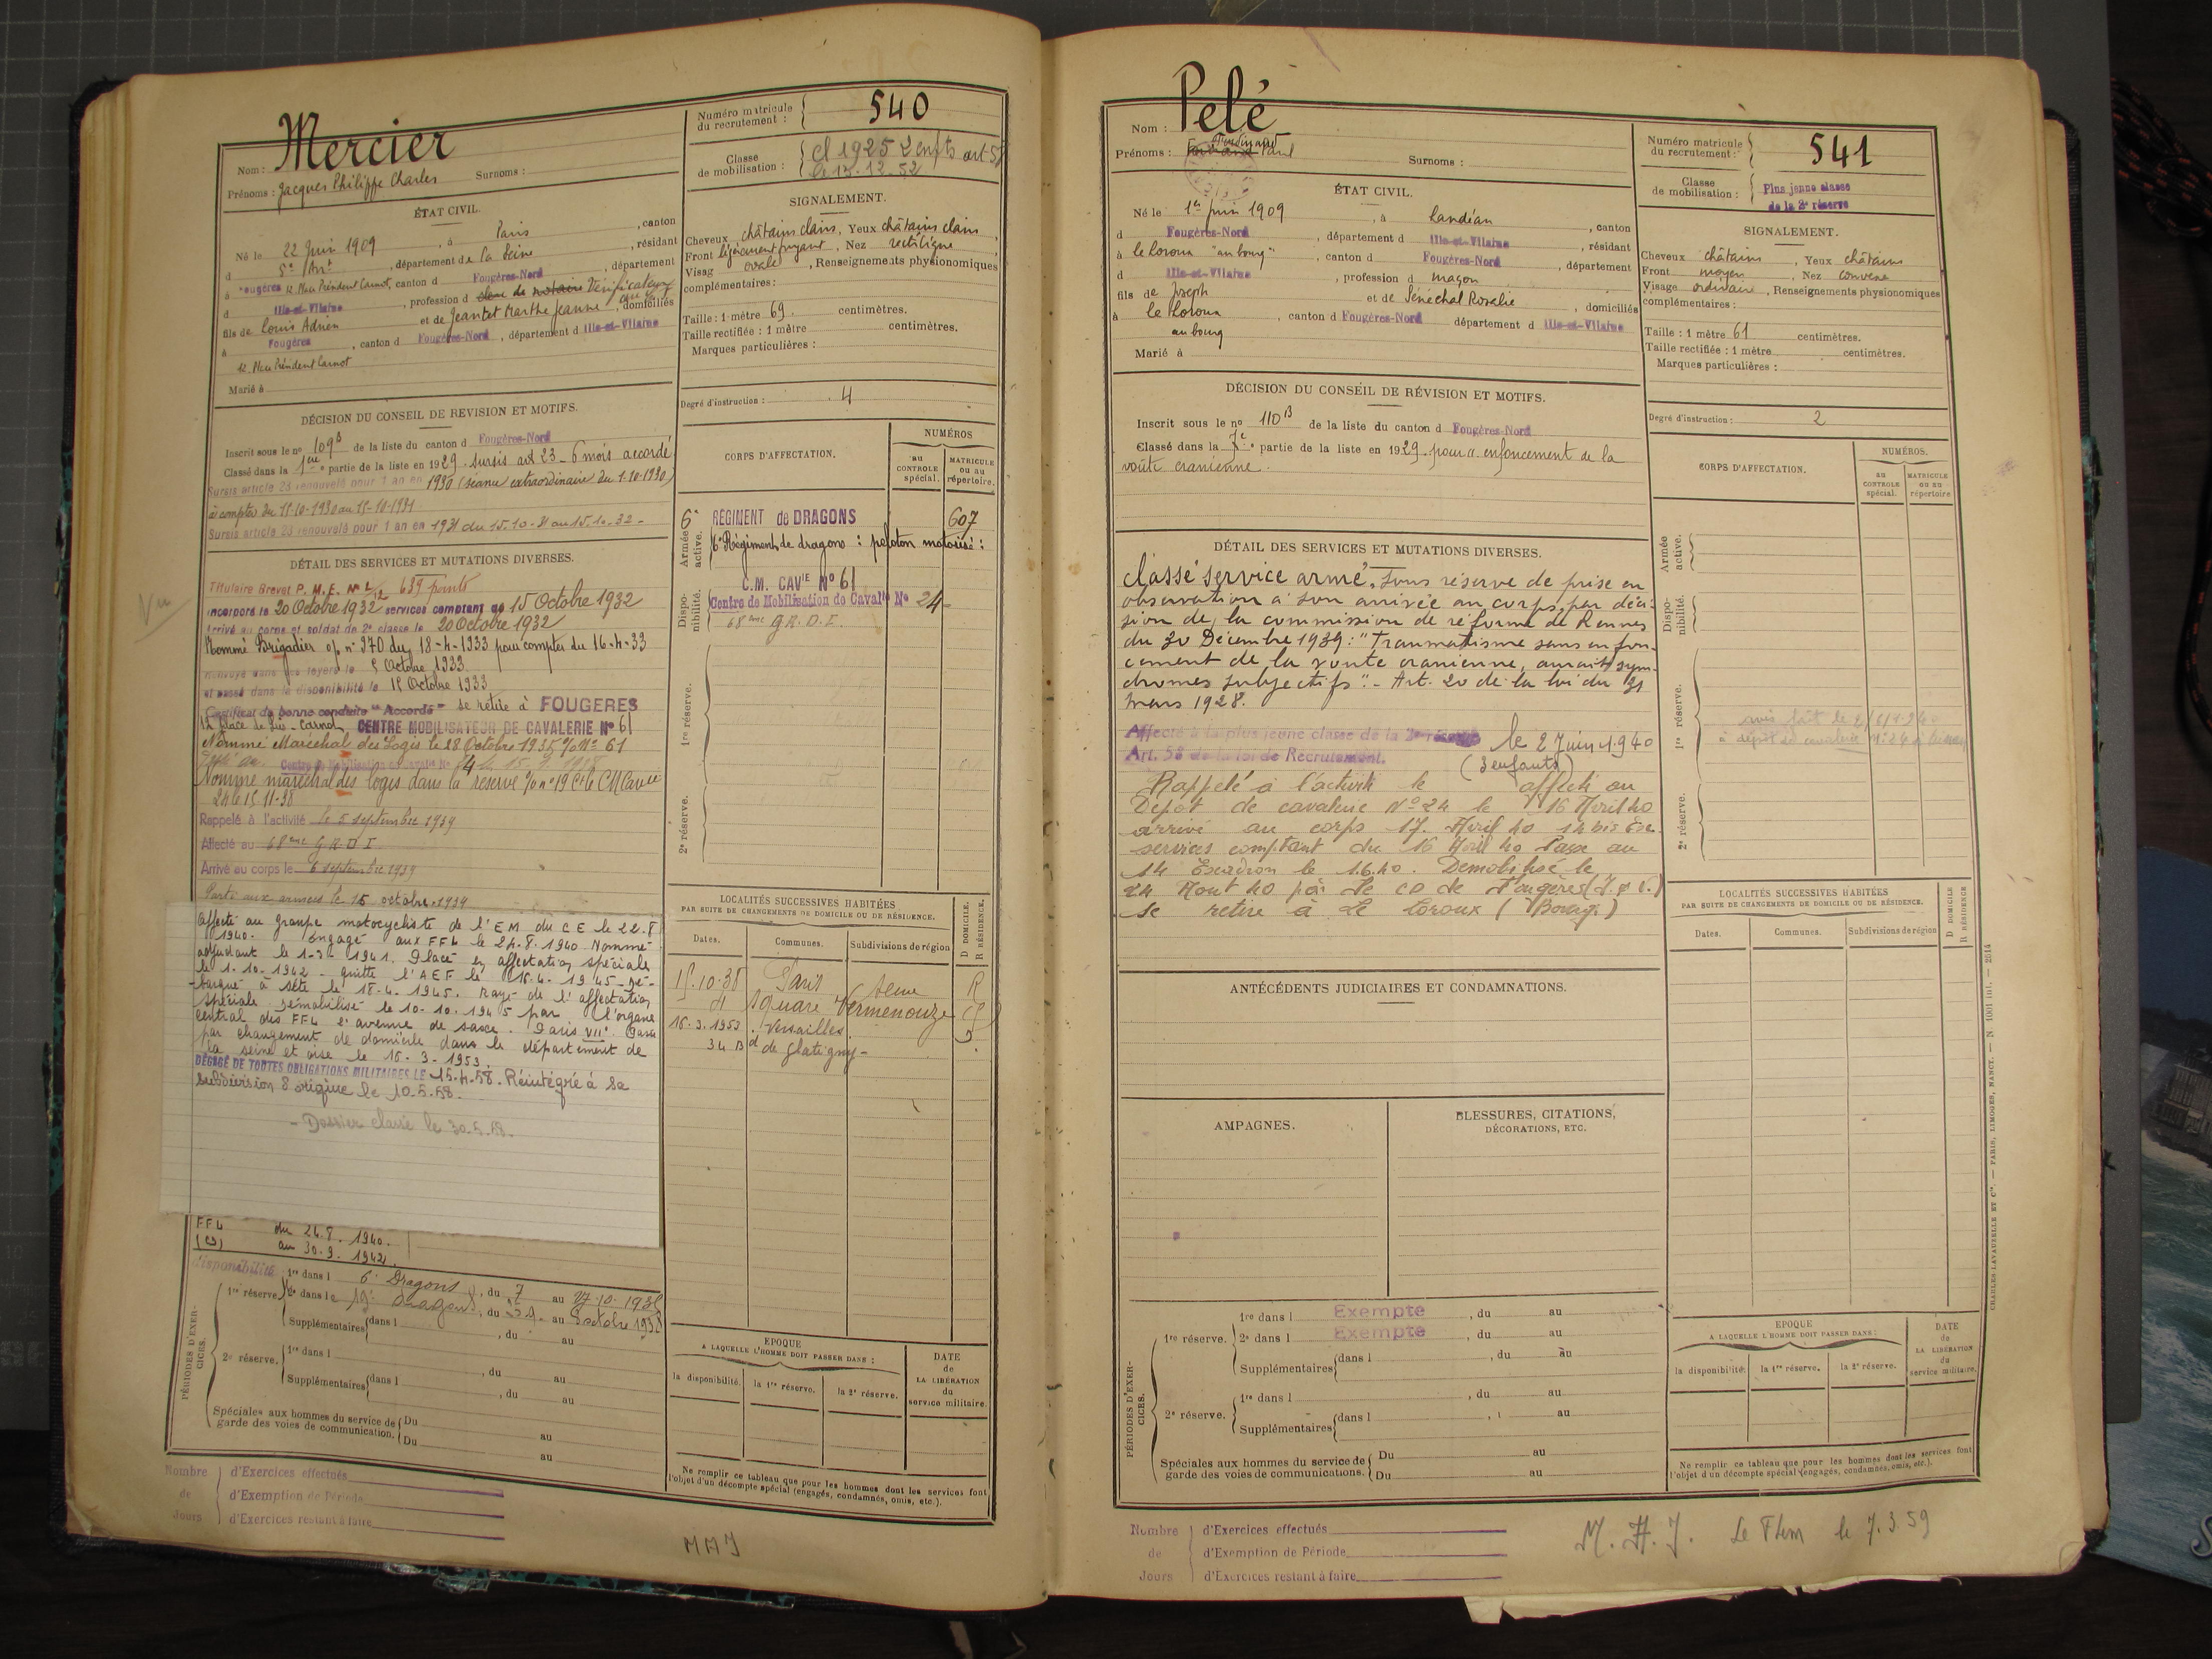 Mercier
Nom :
Prénoms : Jacques Philippe Charles Surnoms :
Numéro matricule du recrutement : 540
Classe de mobilisation : cl 1925 2 enfts art 58
le 13.12.52
ÉTAT CIVIL.
Né le 22 Juin 1909, à Paris, canton
d 5e Arrt, département de la Seine, résidant
à Fougères 12 Place Président Carnot, canton d Fougères-Nord, département
d Ille-et-Vilaine, profession d clerc de notaire Vérificateur
fils de Louis Adrien et de Jeantet Marthe Jeanne, domiciliés
à Fougères, canton d Fougères-Nord, département d Ille-et-Vilaine
12 Place Président Carnot
Marié à
SIGNALEMENT.
Cheveux châtains clairs, Yeux châtains clairs,
Front légèrement fuyant, Nez rectiligne
Visag ovale, Renseignements physionomiques
complémentaires :
Taille : 1 mètre 69 centimètres.
Taille rectifiée : 1 mètre centimètres.
Marques particulières :
Degré d'instruction : 4
DÉCISION DU CONSEIL DE RÉVISION ET MOTIFS.
Inscrit sous le no 109 B de la liste du canton d Fougères-Nord
Classé dans la 1ère partie de la liste en 1929. sursis art 23 - 6 mois accordé
Sursis article 23 renouvelé pour 1 an en 1930 (séance extraordinaire du 1-10-1930)
à compter du 15-10-1930 au 15-10-1931
Sursis article 23 renouvelé pour 1 an en 1931 du 15-10-31 au 15-10-32-
DÉTAIL DES SERVICES ET MUTATIONS DIVERSES.
Titulaire Brevet P. M. E. 639 points
Incorporé le 20 Octobre 1932 services comptant du 15 Octobre 1932
Arrivé au corps et soldat de 2e classe le 20 Octobre 1932
Nommé Brigadier op. n° 970 du 18-4-1933 pour compter du 16-4-33
Renvoyé dans ses foyers le 5 Octobre 1933
et passé dans la disponibilité le 15 Octobre 1933
Certificat de bonne conduite "Accordé" se retire à FOUGERES
12 place de Pdt. Carnot CENTRE MOBILISATEUR DE CAVALERIE No 61
Nommé Maréchal des Logis le 28 Octobre 1935 N° 61
Centre de Mobilisation de Cavalie No 24
Nommé maréchal des logis dans la réserve n° 19 CM Cavie
24 le 15-11-38
Rappelé à l'activité le 5 septembre 1939
Affecté au 68eme G R D I
Arrivé au corps le 6 septembre 1939
Parti aux armées le 15 octobre 1939
Affecté au groupe motocycliste de l'EM du CE le 22.8
1940. Engagé aux FFL le 24.8.1940 Nommé
adjudant le 1-3-1941. Placé en affectation spéciale
le 1.10-1942 - quitte l'AEF le 16.4.1945 - dé-
barqué à Sète le 18-4.1945. Rayé de l'affectation
spéciale. démobilisé le 10-10.1945 par l'organe
central des FFL avenue de saxe. Paris VIIe. Passé
par changement de domicile dans le département de
la seine et oise le 16-3-1953.
DÉGAGÉ DE TOUTES OBLIGATIONS MILITAIRES LE 15-4-58. Réintégré à sa
subdivision d'origine le 10.5.58.
- Dossier classé le 30.5.58.
FFL du 24.8.1940.
au 30.9.1942
CORPS D'AFFECTATION.
NUMÉROS
au CONTROLE spécial.
MATRICULE ou au répertoire.
Armée active.
6e RÉGIMENT de DRAGONS 607
6e Régiment de dragons : peloton motorisé :
Disponibilité.
C.M. CAVIE No 61
Centre de Mobilisation de Cavalie No 24
68eme G.R.D.I.
1re réserve.
2e réserve.
LOCALITÉS SUCCESSIVES HABITÉES
PAR SUITE DE CHANGEMENTS DE DOMICILE OU DE RÉSIDENCE.
D DOMICILE. R RÉSIDENCE.
Dates. Communes. Subdivisions de région
15.10.38 Paris Seine R
Square Vermenouze
16.3.1953 Versailles
34 Bd de Glatigny
disponibilité 1re dans l 6e Dragons, du 7 au 27-10-1935
1re réserve 2e dans le 19e dragons, du au octobre 1938
Supplémentaires dans l , du au
2e réserve. 1re dans l , du au
Supplémentaires dans l , du au
Spéciales aux hommes du service de garde des voies de communication. Du au
Du au
PÉRIODES D'EXERCICES.
EPOQUE
A LAQUELLE L'HOMME DOIT PASSER DANS :
la disponibilité. la 1re réserve. la 2e réserve.
DATE de LA LIBÉRATION du service militaire.
Ne remplir ce tableau que pour les hommes dont les services font
l'objet d'un décompte spécial (engagés, condamnés, omis, etc.).
Nombre de Jours
d'Exercices effectués
d'Exemption de Période
d'Exercices restant à faire
MAJ
Pelé
Nom :
Prénoms : Ferdinand Paul Surnoms :
Numéro matricule du recrutement : 541
Classe de mobilisation : Plus jeune classe
de la 2e réserve
ÉTAT CIVIL.
Né le 1er juin 1909, à Landéan, canton
d Fougères-Nord, département d Ille-et-Vilaine, résidant
à le Loroux "au bourg", canton d Fougères-Nord, département
d Ille-et-Vilaine, profession d maçon
fils de Joseph et de Sénéchal Rosalie, domiciliés
à le Loroux, canton d Fougères-Nord département d Ille-et-Vilaine
au bourg
Marié à
SIGNALEMENT.
Cheveux châtains, Yeux châtains
Front moyen, Nez convexe
Visage ordinaire, Renseignements physionomiques
complémentaires :
Taille : 1 mètre 61 centimètres.
Taille rectifiée : 1 mètre centimètres.
Marques particulières :
Degré d'instruction : 2
DÉCISION DU CONSEIL DE RÉVISION ET MOTIFS.
Inscrit sous le no 110 B de la liste du canton d Fougères-Nord
Classé dans la partie de la liste en 1929. pour enfoncement de la
voûte cranienne.
DÉTAIL DES SERVICES ET MUTATIONS DIVERSES.
Classé service armé, sous réserve de prise en
observation à son arrivée au corps, par déci-
sion de la commission de réforme de Rennes
du 20 Décembre 1939 : "Traumatisme sans enfon-
cement de la voute cranienne, aurait syn-
dromes subjectifs". - Art. 20 de la loi du 31
mars 1928.
Affecté à la plus jeune classe de la 2e réserve le 2 Juin 1940
Art. 58 de la loi de Recrutement. (3 enfants)
Rappelé à l'activité le affecté au
Dépôt de cavalerie No 24 le 16 Avril 40
arrivé au corps 17 Avril 40 14 bis Esc.
services comptant du 16 Avril 40 Passe au
14 Escadron le 1.6.40. Démobilisé le
24 Aout 40 par le CD de Fougères (I. & V.)
se retire à Le Loroux (Bourg)
ANTÉCÉDENTS JUDICIAIRES ET CONDAMNATIONS.
AMPAGNES.
BLESSURES, CITATIONS,
DÉCORATIONS, ETC.
1re réserve. 1re dans l Exempte, du au
2e dans l Exempte, du au
Supplémentaires dans l , du au
2e réserve. 1re dans l , du au
Supplémentaires dans l , au
Spéciales aux hommes du service de garde des voies de communications. Du au
Du au
PÉRIODES D'EXERCICES.
CORPS D'AFFECTATION.
NUMÉROS.
au CONTROLE spécial.
MATRICULE ou au répertoire
Armée active.
Disponibilité.
1re réserve.
avis fait le
à dépôt de cavalerie N° 24
2e réserve.
LOCALITÉS SUCCESSIVES HABITÉES
PAR SUITE DE CHANGEMENTS DE DOMICILE OU DE RÉSIDENCE.
D DOMICILE R RÉSIDENCE
Dates. Communes. Subdivisions de région
EPOQUE
A LAQUELLE L'HOMME DOIT PASSER DANS :
la disponibilité. la 1re réserve. la 2e réserve.
DATE de LA LIBÉRATION du service militaire.
Ne remplir ce tableau que pour les hommes dont les services font
l'objet d'un décompte spécial (engagés, condamnés, omis, etc.).
CHARLES-LAVAUZELLE ET Cie. — PARIS, LIMOGES, NANCY. — N 1001 int. — 2614
Nombre de Jours
d'Exercices effectués
d'Exemption de Période
d'Exercices restant à faire
M.A.J. Le Flem le 7.3.59